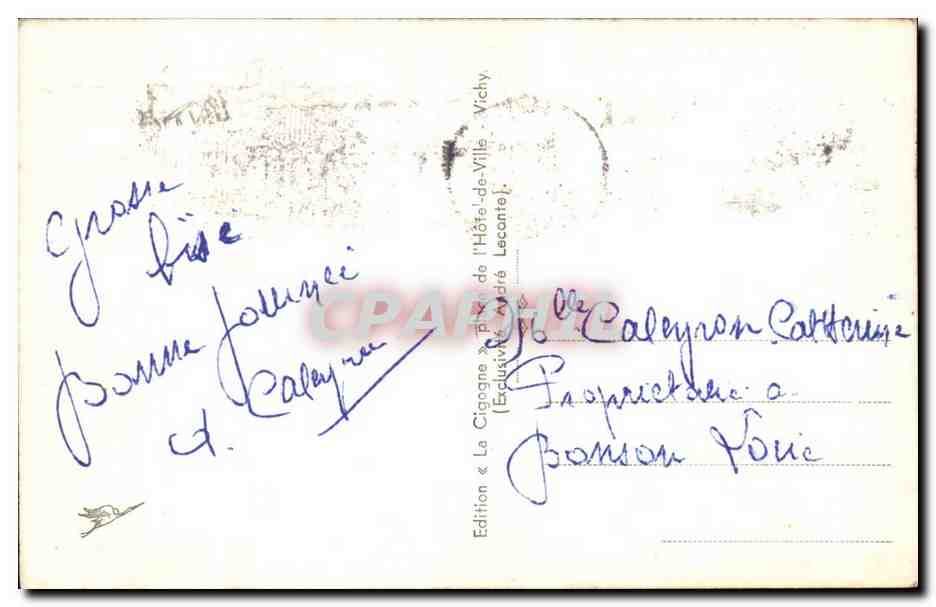 Grosse
bise
Bonne Journée
d. Caleyron
Edition « La Cigogne » place de l'Hôtel-de-Ville - Vichy
(Exclusivité André Leconte)
CPAPHIL
Mlle Caleyron Catherine
Propriétaire a
Bonson Loire